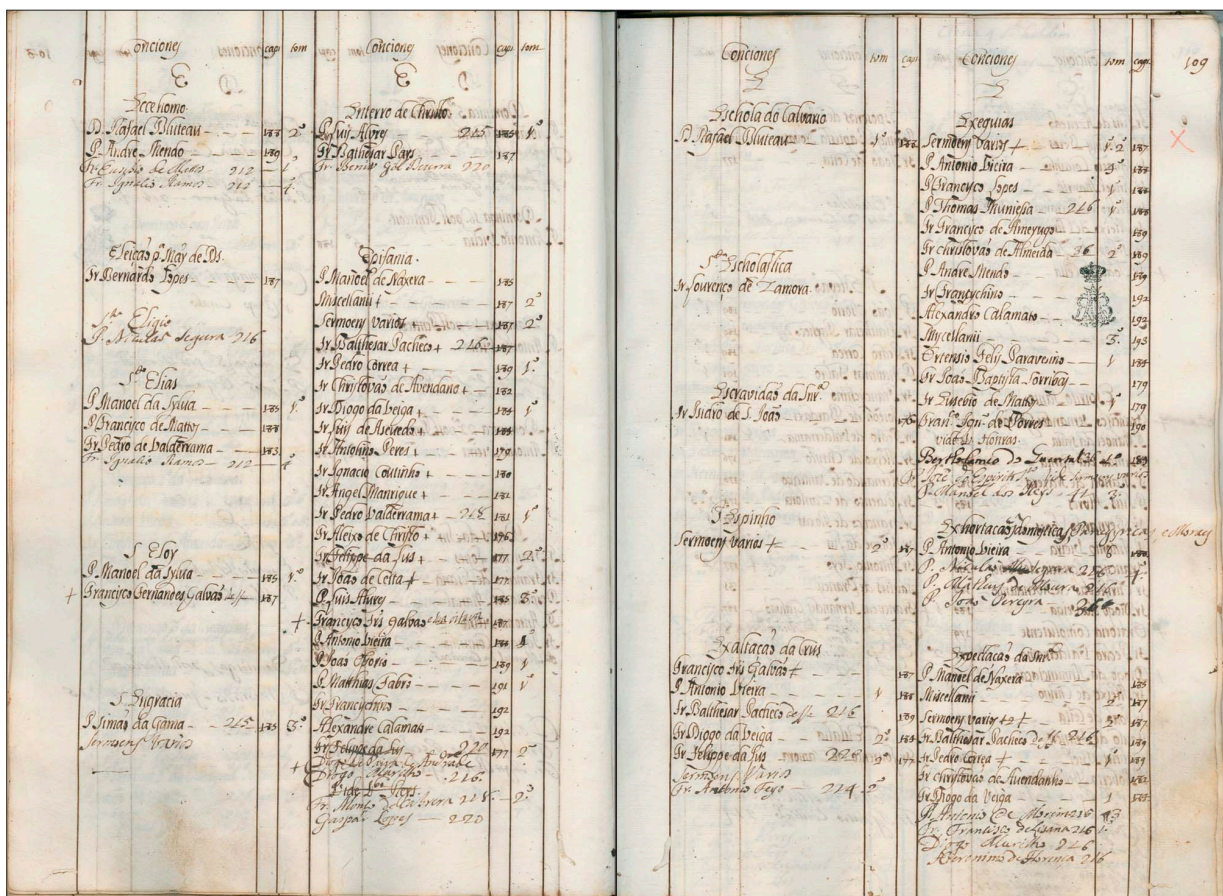 Conciones cap. tom
E
Eccehomo
D. Rafael Bluteau — 188 2º
P. Andre Mendo — 189
Fr. Eusebio de Mattos — 212 — 1
Fr. Ignacio Ramos — 212 — 4
Eleição pª May de Ds.
Fr. Bernardo Lopes — 187
Sto Eligio
P. Nicolas Segura 216
Sto Elias
P. Manoel da Sylva — 185 1º
P. Francisco de Mattos — 188
Fr. Pedro de Valderrama — 183
Fr. Ignacio Ramos — 212 — 4
S. Eloy
P. Manoel da Sylva — 185 1º
+ Francisco Fernandes Galvão 187
S. Engracia
P. Simão da Gama — 215 185 3º
Sermoens Varios
Conciones cap. tom.
E
Enterro de Christo
P. Luis Alvres — 215 185 1º
Fr. Balthesar Pais — 187
Fr. Bento Gil Bezerra 220
Epifania
P. Manoel de Naxera — 185
Miscellanii + — 187 2º
Sermoens varios — 187 2º
Fr. Balthesar Pacheco + 216 187
Fr. Pedro Correa + — 189 1º
Fr. Christovão de Avendano + — 182
Fr. Diogo da Veiga + — 184 1º
Fr. Luis de Azevedo + — 184
Fr. Antonino Peres + — 179
Fr. Ignacio Coutinho + — 180
Fr. Angel Manrique + — 181
Fr. Pedro Valderrama + 181 1º
Fr. Aleixo de Christo + 176
Fr. Felippe da Lus + — 177 2º
Fr. João de Ceita +
P. Luis Alvres — 185 3º
+ Francisco Frs Galvão 187
P. Antonio Vieira — 188 1
P. João Osorio — 189 1
P. Matthias Fabro — 191 1º
Fr. Francuchino — 192
Alexandre Calamato — 192
Fr. Felippe da Lus 220 177 2º
Diogo de Payva de Andrade
+ Diogo Murilho — 216
Fr. Mont. de Cabrera 218 — 2º
Gaspar Lopes — 220
Conciones tom cap.
E
Eschola do Calvario
D. Rafael Bluteau — 1º 188
Sta Escholastica
Fr. Lourenço de Zamora
Escravidão da Snrª
Fr. Isidro de S. João 176
S. Espinho
Sermoens varios + — 2º 187
Exaltação da Crus
Francisco Frs Galvão + 187
P. Antonio Vieira — 1 188
Fr. Balthesar Pacheco 216 189
Fr. Diogo da Veiga — 2º 184
Fr. Felippe da Lus 220 2º 177
Sermoens Varios
Fr. Antonio Feyo — 214 2
Conciones tom cap.
109
E
Exequias
Sermoens varios + — 1. 2 187
P. Antonio Vieira — 188
P. Francisco Lopes — 1 188
P. Thomas Muniessa — 216 1º 188
Fr. Francisco de Ameyugo — 189
Fr. Christovão de Almeida — 2º 189
P. Andre Mendo — 189
Fr. Francuchino — 192
Alexandro Calamato — 192
Miscellanii — 3 193
Ortensio Felis Paravesino — 1 184
Fr. João Baptista Torribas — 179
Fr. Eusebio de Mattos — 179
Franco Ign. de Porres 190
vide Vs. Honras
Bertholameo do Quental
P. Manoel dos Reys
Exhortação domestica, Panegyricas, e Moraes
P. Antonio Vieira — 8 188
P. Nicolas Segura 216
P. Matheus de Moura 216
P. João Pereyra 216
Expectação da Snrª
P. Manoel de Naxera 185
Miscellanii — 2 187
Sermoens varios + 187
Fr. Balthesar Pacheco 216 189
Fr. Pedro Correa + — 1 189
Fr. Christovão de Avendanho — 182
Fr. Diogo da Veiga — 1 184
P. Antonio de Morim 216
Fr. Francisco 216 1.
Diogo Murilho 216
Hieronimo de Florencia 216